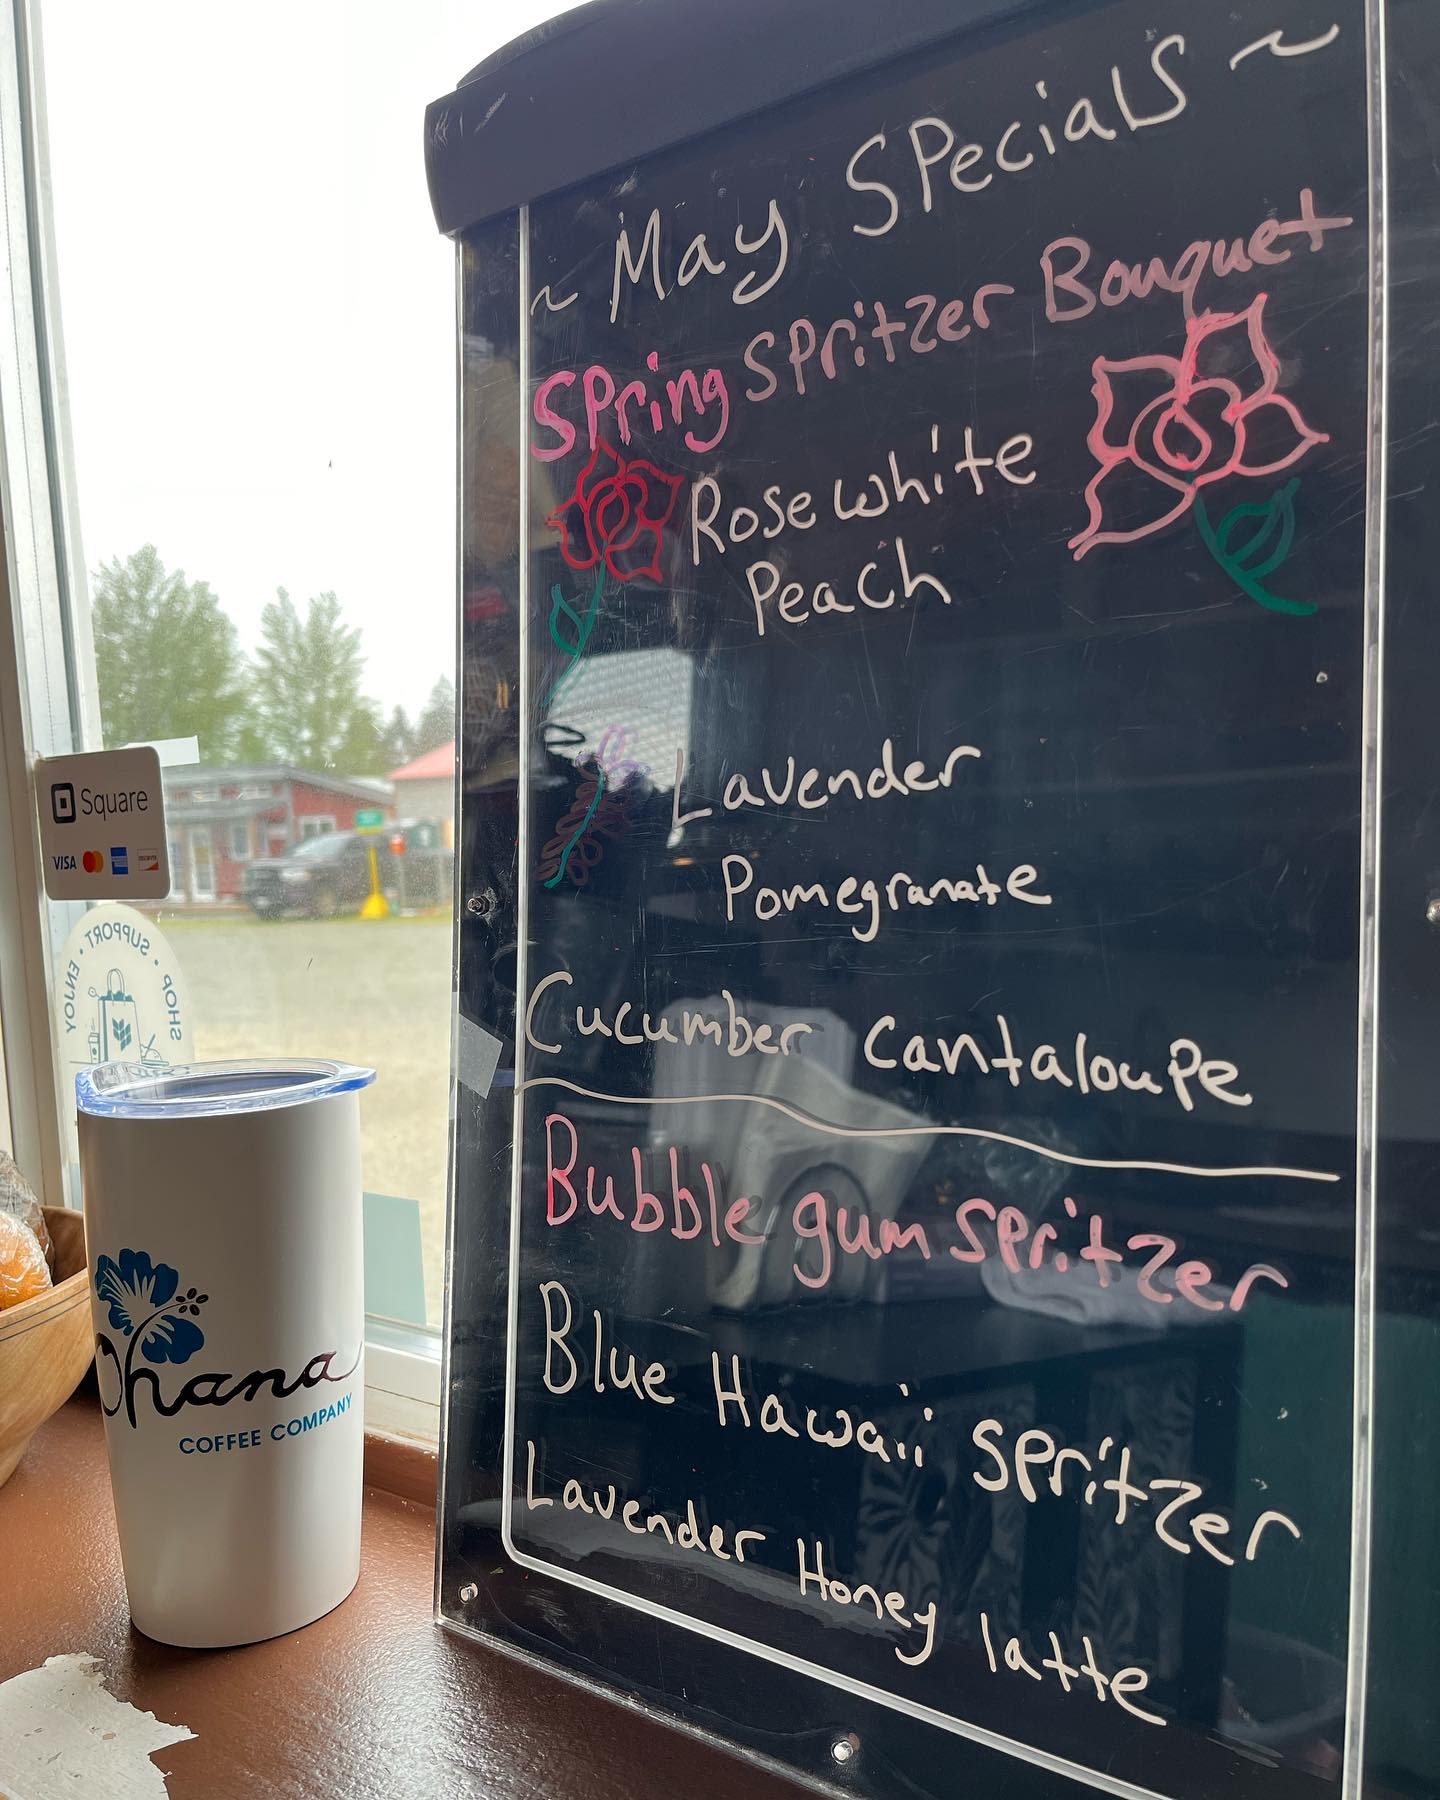 ~ May Specials ~
Spring Spritzer Bouquet
Rose white
Peach
Lavender
Pomegranate
Cucumber Cantaloupe
Bubble gum Spritzer
Blue Hawaii Spritzer
Lavender Honey latte
Square
VISA
DISCOVER
SHOP • SUPPORT • ENJOY
Ohana
COFFEE COMPANY